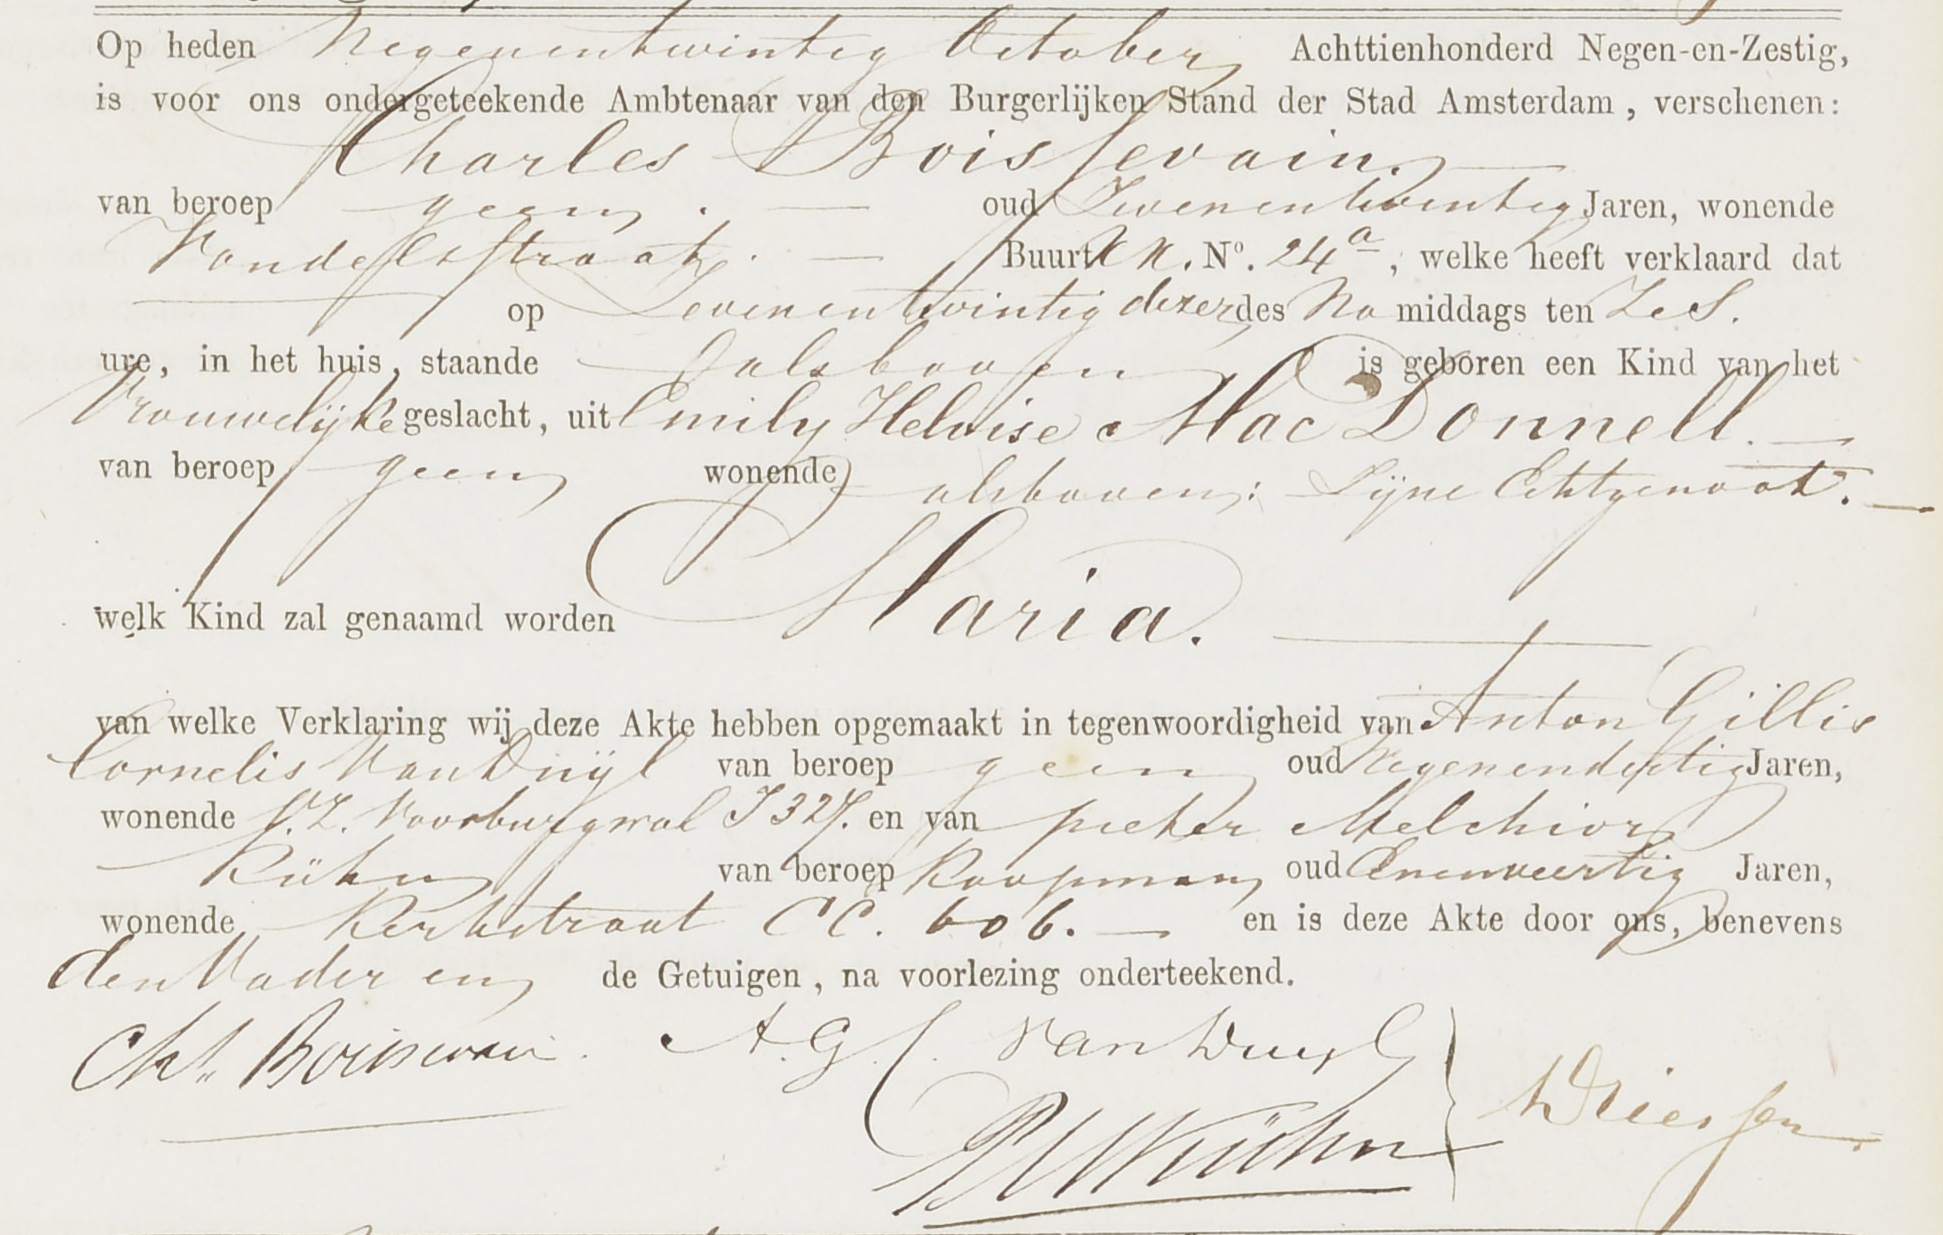 Op heden Negenentwintig October Achttienhonderd Negen-en-Zestig,
is voor ons ondergeteekende Ambtenaar van den Burgerlijken Stand der Stad Amsterdam, verschenen:
Charles Boissevain.
van beroep geen. oud Zevenentwintig Jaren, wonende
Vondelsstraat. Buurt N. No. 24a, welke heeft verklaard dat
op Zevenentwintig dezer des Na middags ten Zes.
ure, in het huis, staande Alsboven is geboren een Kind van het
Vrouwelijke geslacht, uit Emily Heloise Mac Donnell.
van beroep geen wonende alsboven; Zijne Echtgenoot.
welk Kind zal genaamd worden Maria.
van welke Verklaring wij deze Akte hebben opgemaakt in tegenwoordigheid van Anton Gillis
Cornelis Van Duijl van beroep geen oud Negenendertig Jaren,
wonende Voorburgwal J 327. en van pieter Melchior
Kühn van beroep Koopman oud Eenenveertig Jaren,
wonende Kerkstraat CC. 606. en is deze Akte door ons, benevens
den Vader en de Getuigen, na voorlezing onderteekend.
Chs. Boissevain. A. G. C. Van Duyl
PM Kühn
Driessen